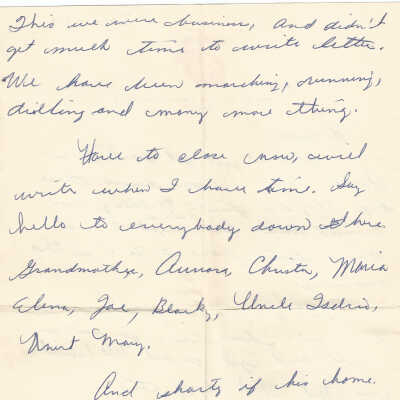 This we were business, And didn't
get much time to write letter.
We have been marching, running,
drilling and many more thing.
Have to close now, will
write when I have time. Say
hello to everybody down there.
Grandmother, Aurora, Christa, Maria
Elena, Joe, Blacky, Uncle Isdrio,
Aunt Mary.
And shorty if his home.